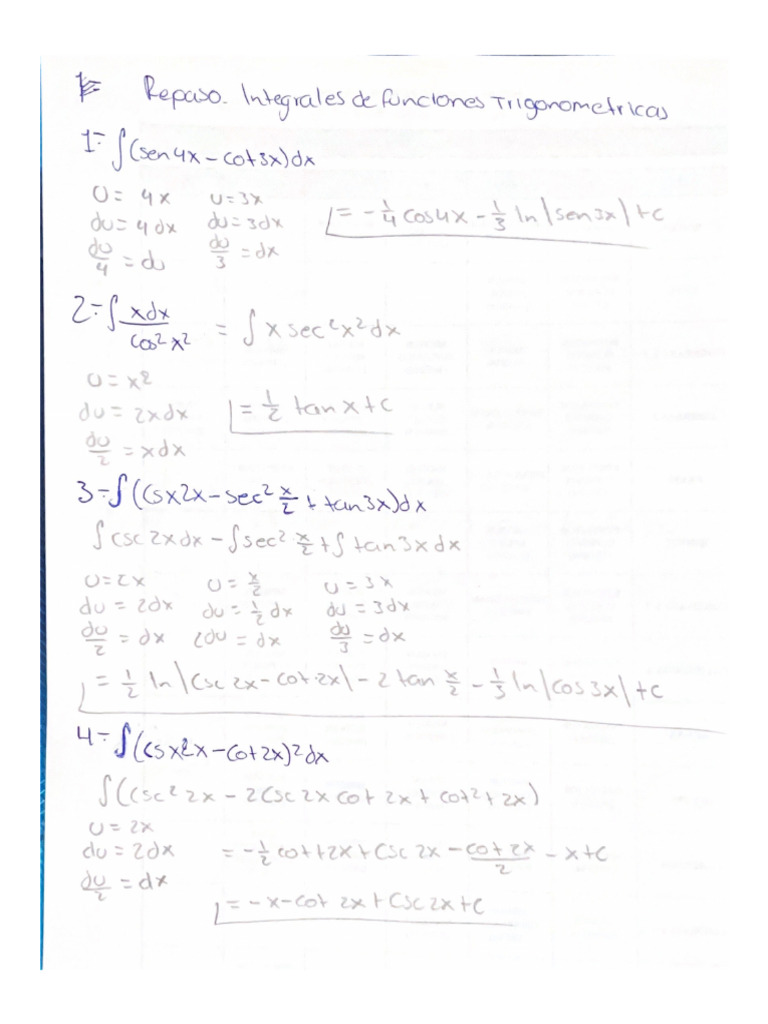 Repaso. Integrales de funciones Trigonometricas
1= ∫(sen4x - cot3x)dx
U= 4x U=3x
du= 4dx du= 3dx = -1/4 cos4x - 1/3 ln|sen3x|+C
du/4 = du du/3 = dx
2= ∫ xdx/cos²x² = ∫ x sec²x² dx
U= x²
du = 2xdx = 1/2 tan x + C
du/2 = xdx
3= ∫(Csx2x - sec² x/2 + tan3x)dx
∫csc2xdx - ∫sec² x/2 + ∫tan3xdx
U=2x U= x/2 U= 3x
du= 2dx du= 1/2 dx du= 3dx
du/2 = dx 2du = dx du/3 = dx
= 1/2 ln|Csc2x - cot·2x| - 2tan x/2 - 1/3 ln|cos3x|+C
4= ∫(csx2x - cot2x)²dx
∫(csc²2x - 2Csc2x cot 2x + cot²+2x)
U= 2x
du= 2dx = -1/2 cot+2x + Csc2x - cot2x/2 - x+C
du/2 = dx
= -x - cot 2x + Csc2x + C